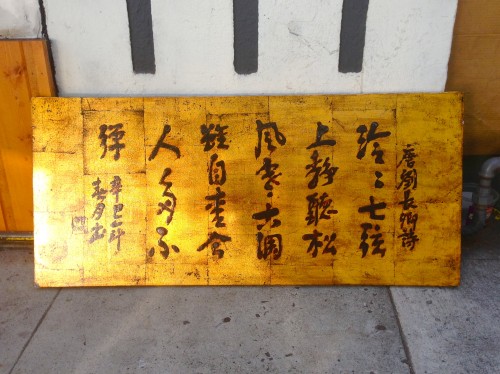 唐劉長卿詩
泠〻七弦
上靜聽松
風寒古調
雖自愛今
人多不
彈
辛巳